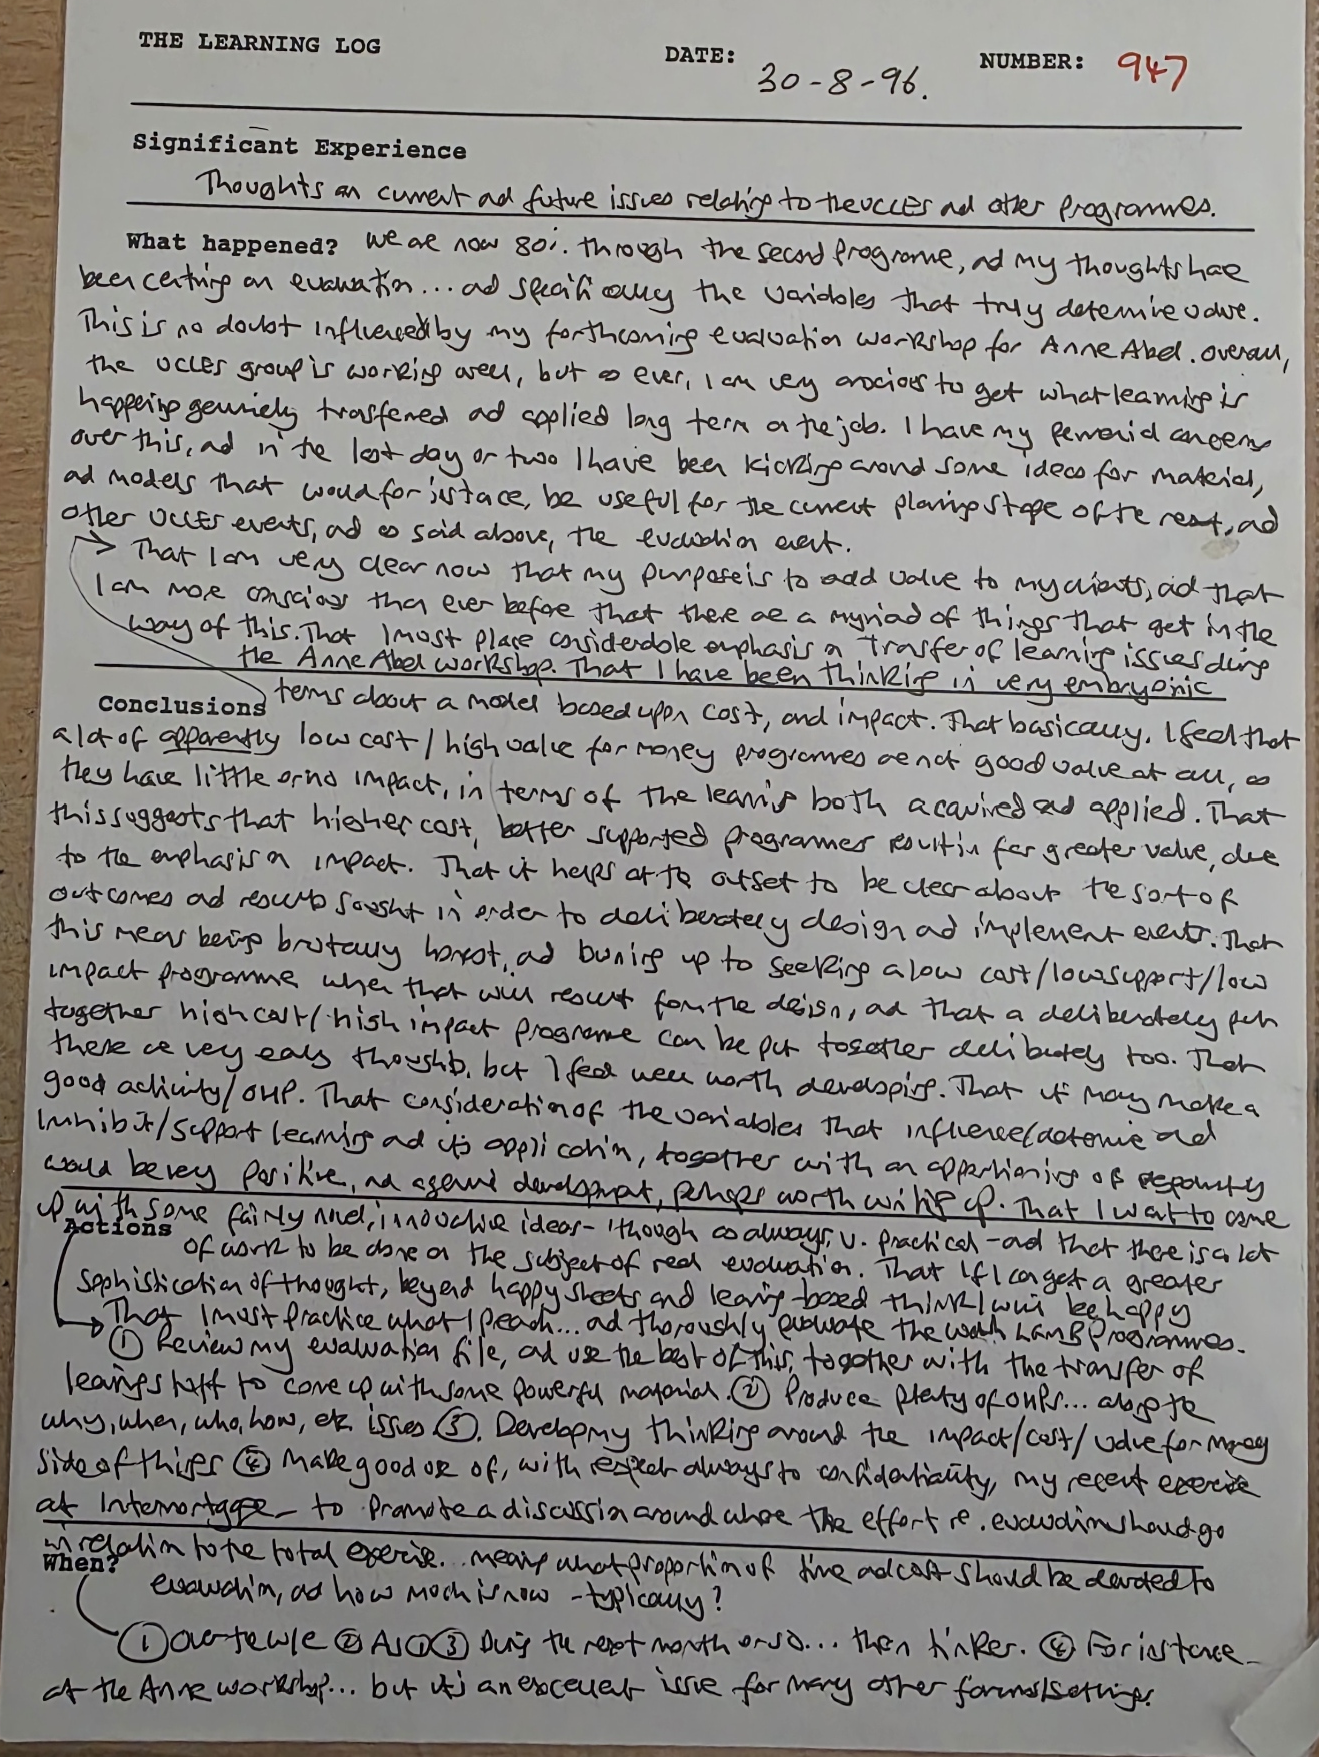 THE LEARNING LOG DATE: 30-8-96. NUMBER: 947
Significant Experience
Thoughts on current and future issues relating to the UCLES and other programmes.
What happened? We are now 80% through the second programme, and my thoughts have
been centring on evaluation... and specifically the variables that truly determine value.
This is no doubt influenced by my forthcoming evaluation workshop for Anne Abel. Overall,
the UCLES group is working well, but as ever, I am very anxious to get what learning is
happening genuinely transferred and applied long term on the job. I have my perennial concerns
over this, and in the last day or two I have been kicking around some ideas for material,
and models that would for instance, be useful for the current planning stage of the next, and
other UCLES events, and as said above, the evaluation event.
That I am very clear now that my purpose is to add value to my clients, and that
I am more conscious than ever before that there are a myriad of things that get in the
way of this. That I must place considerable emphasis on transfer of learning issues during
the Anne Abel workshop. That I have been thinking in very embryonic
Conclusions terms about a model based upon cost, and impact. That basically, I feel that
a lot of apparently low cost/high value for money programmes are not good value at all, as
they have little or no impact, in terms of the learning both acquired and applied. That
this suggests that higher cost, better supported programmes result in far greater value, due
to the emphasis on impact. That it helps at the outset to be clear about the sort of
outcomes and results sought in order to deliberately design and implement events. That
this means being brutally honest, and owning up to seeking a low cost/low support/low
impact programme when that will result from the design, and that a deliberately put
together high cost/high impact programme can be put together deliberately too. That
these are very early thoughts, but I feel well worth developing. That it may make a
good activity/OHP. That consideration of the variables that influence/determine and
inhibit/support learning and its application, together with an apportioning of responsibility
would be very positive, and a genuine development, perhaps worth writing up. That I want to come
up with some fairly novel, innovative ideas - though as always, v. practical - and that there is a lot
Actions of work to be done on the subject of real evaluation. That if I can get a greater
sophistication of thought, beyond happy sheets and learning-based think I will be happy
That I must practice what I preach... and thoroughly evaluate the programmes.
① Review my evaluation file, and use the best of this, together with the transfer of
learning stuff to come up with some powerful material. ② Produce plenty of OHPs... along the
why, when, who, how, etc issues. ③. Develop my thinking around the impact/cost/value for money
side of things ④ Make good use of, with respect always to confidentiality, my recent exercise
at - to promote a discussion around where the effort re. evaluation should go
in relation to the total exercise... meaning what proportion of time and cost should be devoted to
When? evaluation, and how much is now - typically?
① Over the w/e ② As ① ③ During the next month or so... then tinker. ④ For instance -
at the Anne workshop... but it's an excellent issue for many other forums/settings.